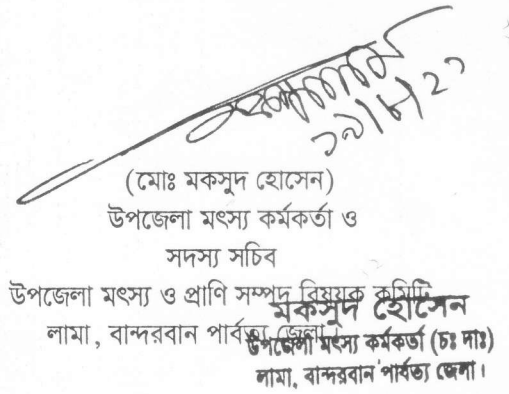 ১৯/৮/২১
(মোঃ মকসুদ হোসেন)
উপজেলা মৎস্য কর্মকর্তা ও
সদস্য সচিব
উপজেলা মৎস্য ও প্রাণি সম্পদ বিষয়ক কমিটি
লামা, বান্দরবান পার্বত্য জেলা
মকসুদ হোসেন
উপজেলা মৎস্য কর্মকর্তা (চঃ দাঃ)
লামা, বান্দরবান পার্বত্য জেলা।